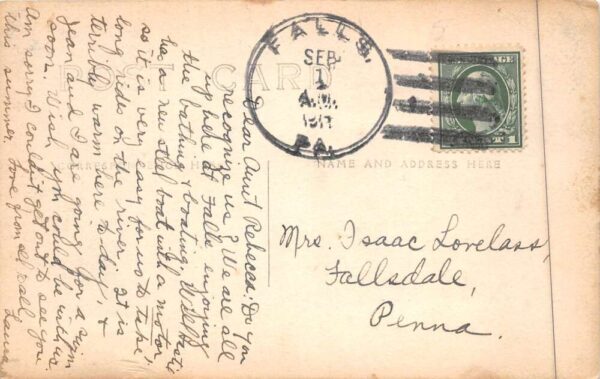 POST CARD
CORRESPONDENCE HERE
NAME AND ADDRESS HERE
FALLS,
SEP
1
A.M.
1911
PA.
1
Mrs. Isaac Lovelass,
Fallsdale,
Penna.
Dear Aunt Rebecca: Do you
reconize us? We are all
up here at Falls enjoying
the bathing & boating.
has a new steel boat with a motor
so it is very easy for us to take
long rides on the river. It is
terribly warm here to-day &
Jean and I are going for a swim
soon. Wish you could be with us.
Am sorry I couldn't get out to see you
this summer. Love from all to all, Laura